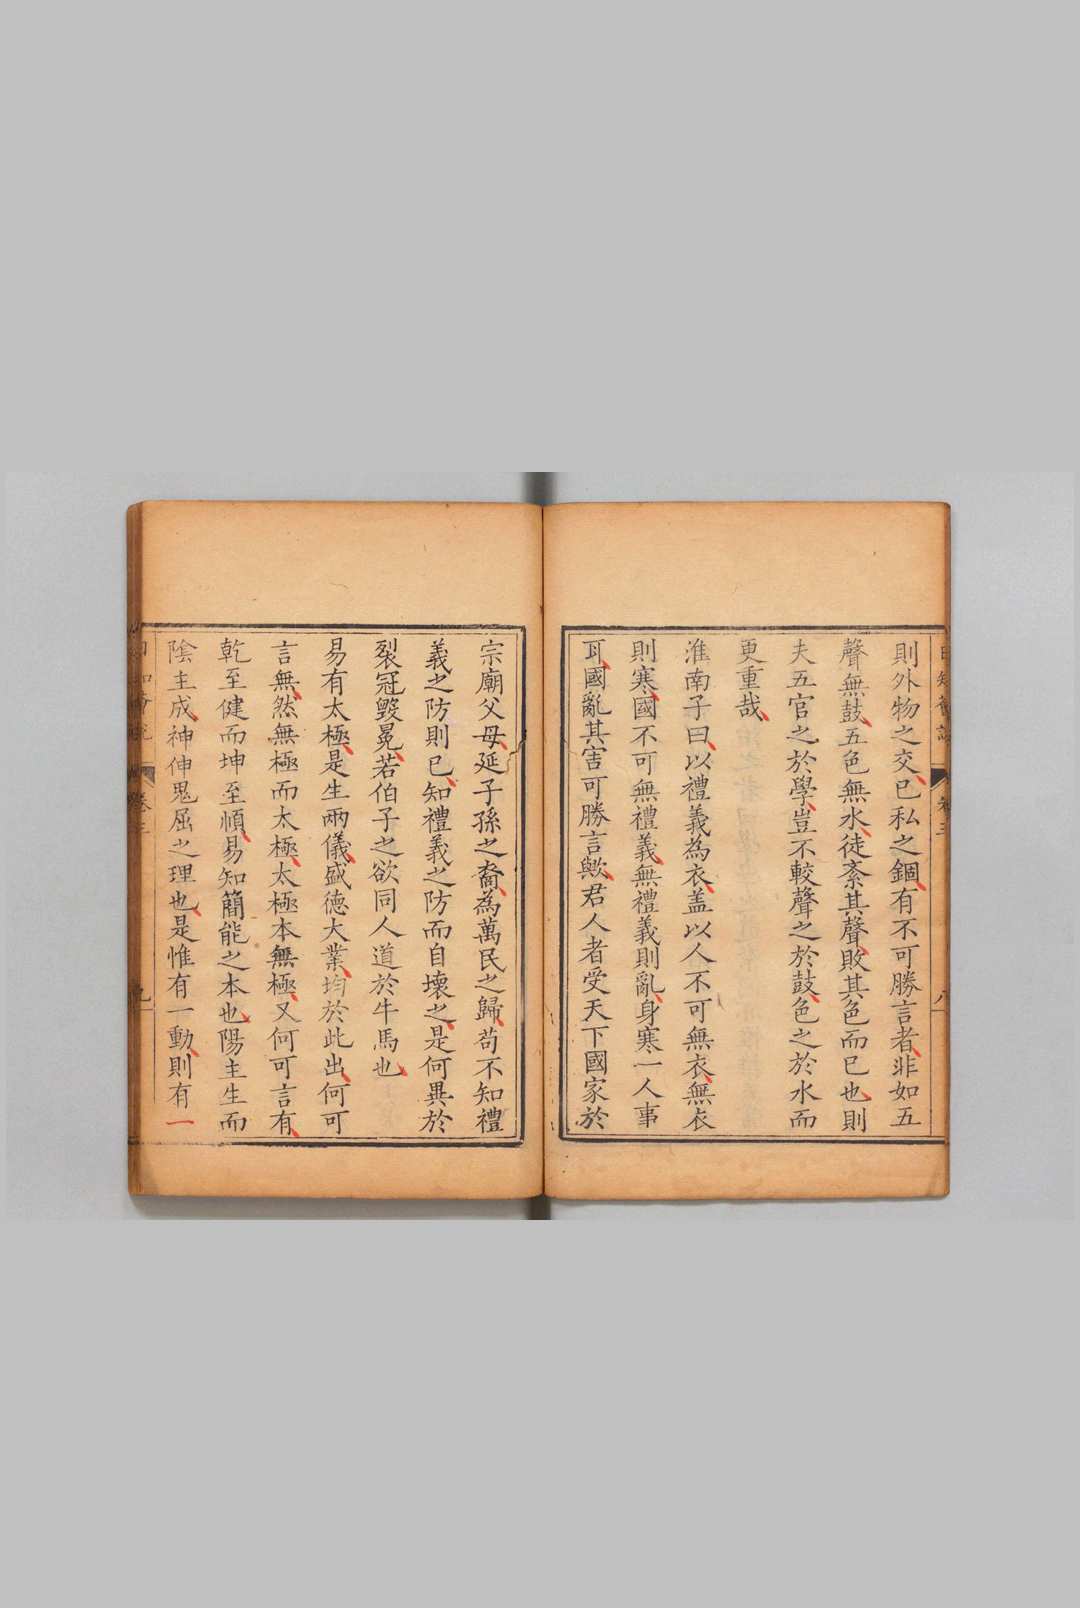 則外物之交已私之錮有不可勝言者非如五
聲無鼓五色無水徒紊其聲敗其色而已也則
夫五官之於學豈不較聲之於鼓色之於水而
更重哉
淮南子曰以禮義為衣盖以人不可無衣無衣
則寒國不可無禮義無禮義則亂身寒一人事
耳國亂其害可勝言歟君人者受天下國家於
宗廟父母延子孫之裔為萬民之歸苟不知禮
義之防則已知禮義之防而自壞之是何異於
裂冠毀冕若伯子之欲同人道於牛馬也
易有太極是生兩儀盛德大業均於此出何可
言無然無極而太極太極本無極又何可言有
乾至健而坤至順易知簡能之本也陽主生而
陰主成神伸鬼屈之理也是惟有一動則有一
卷三
九